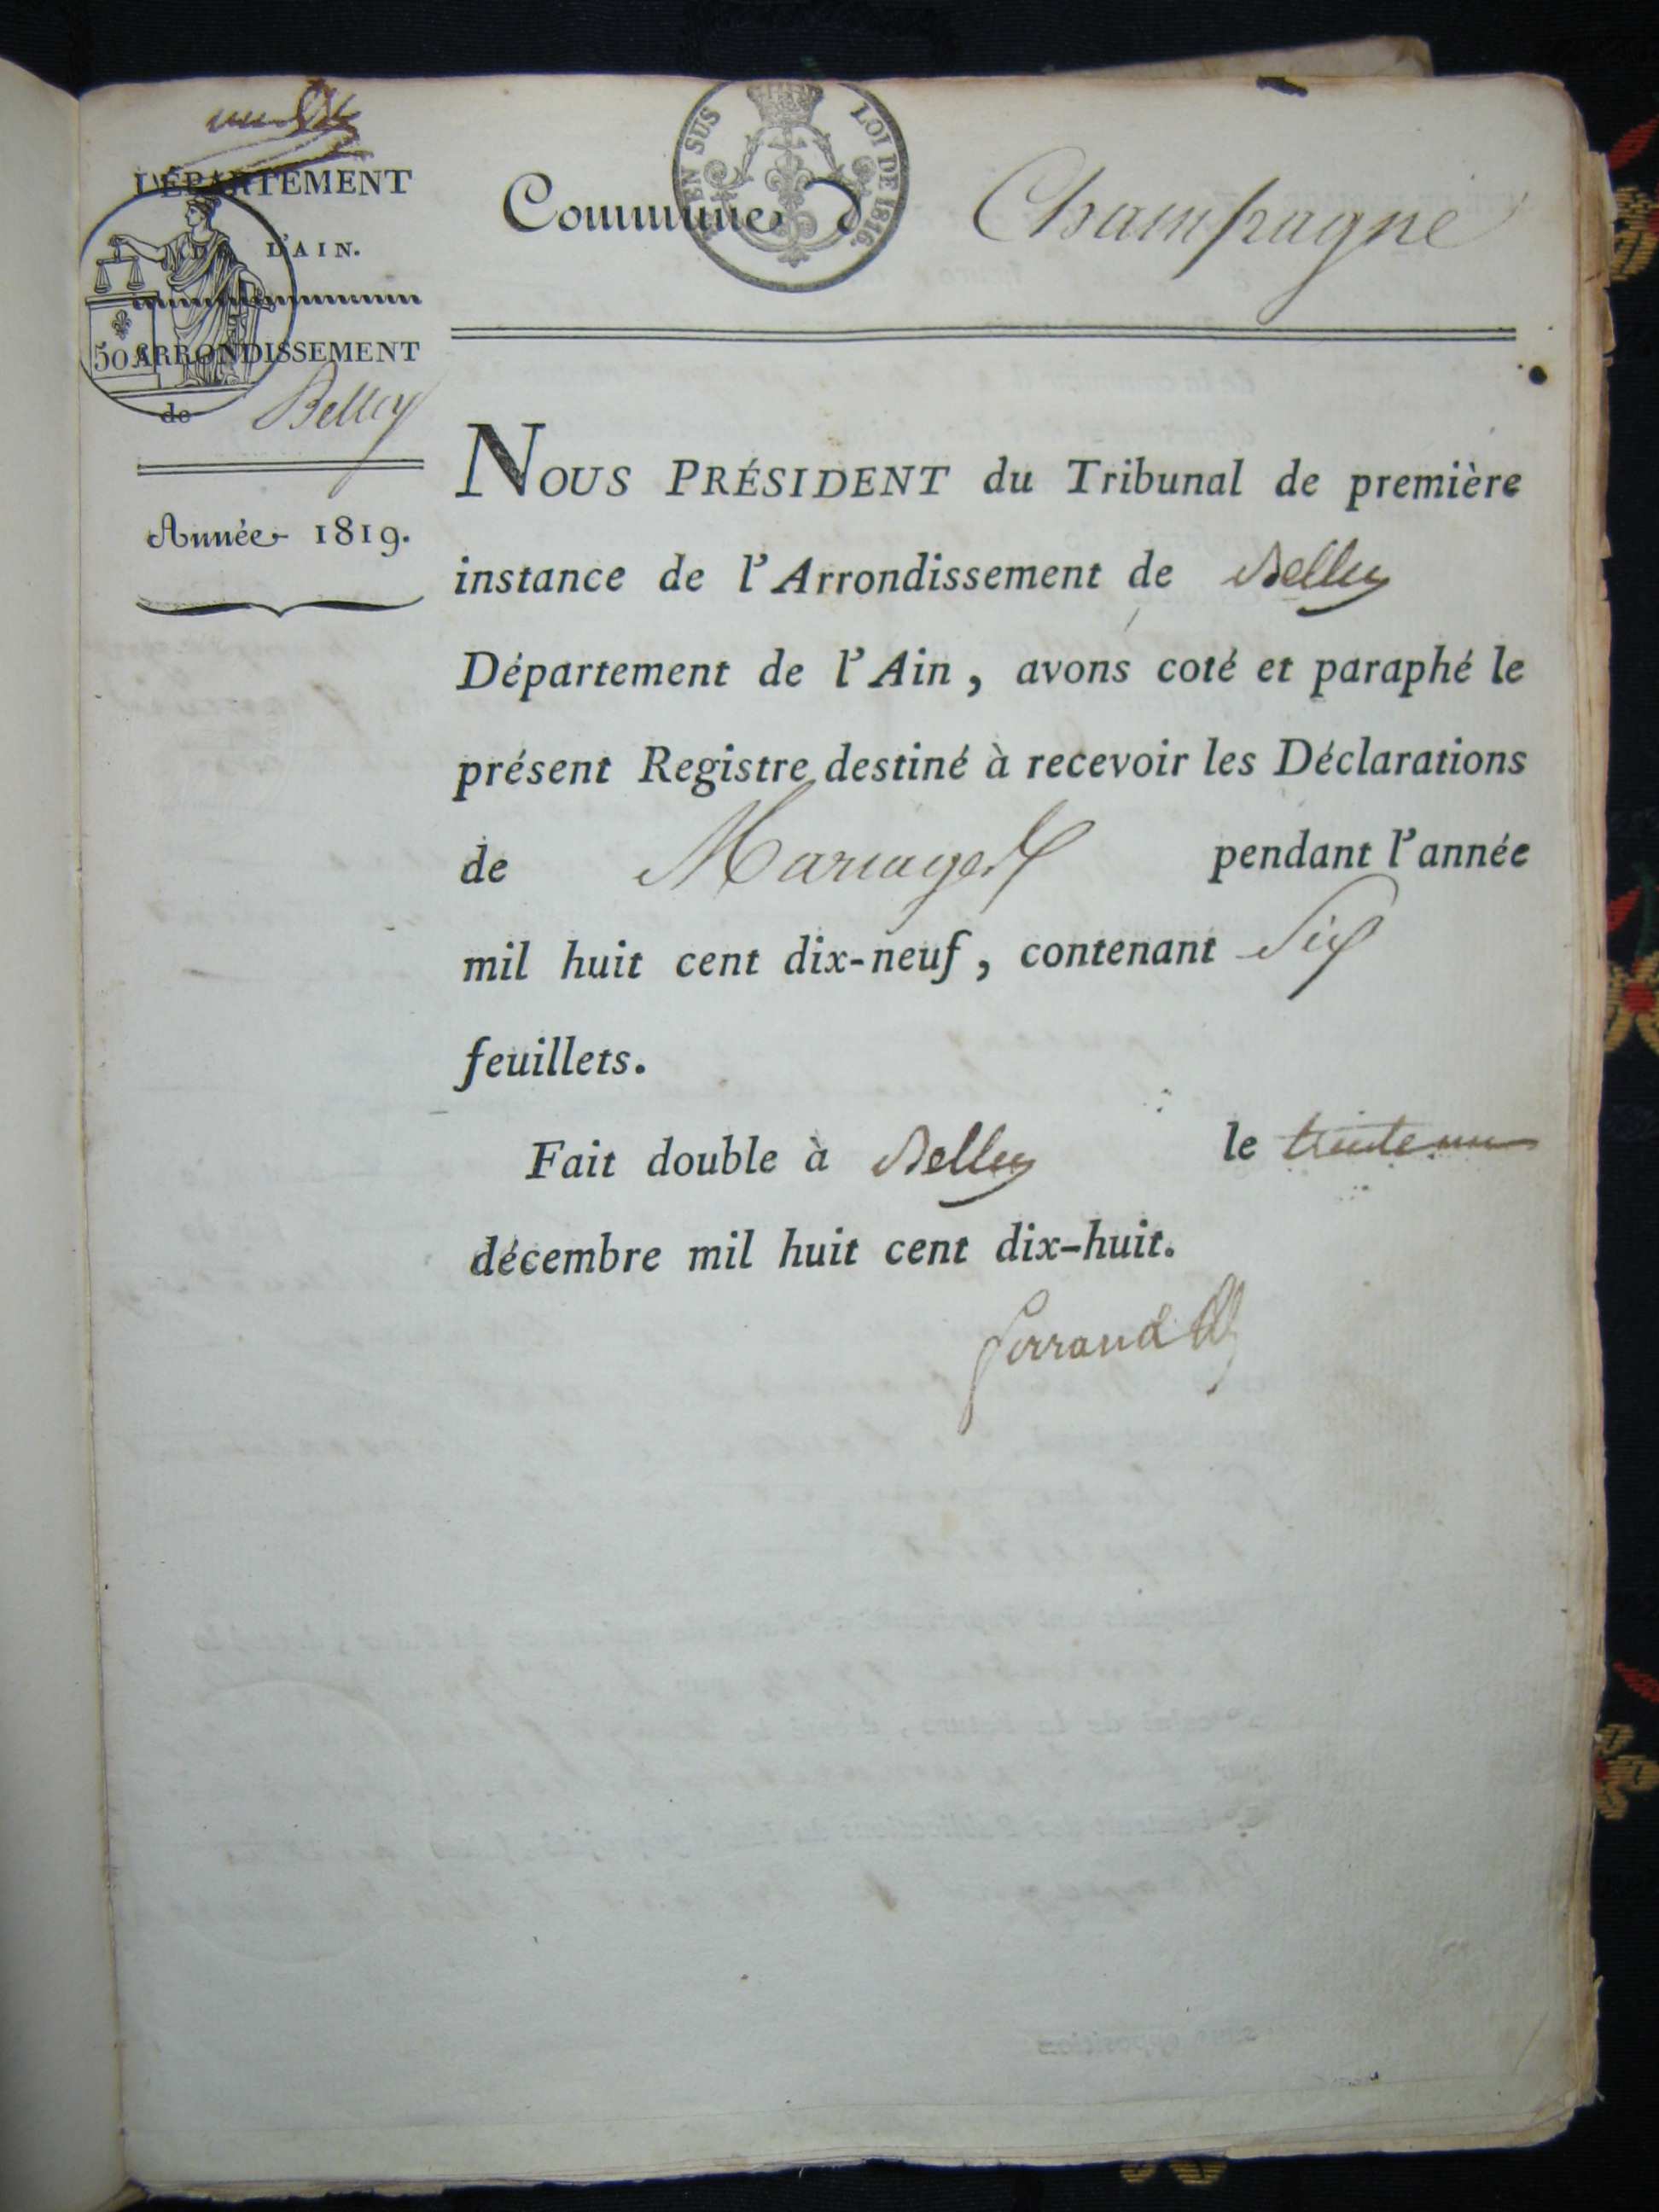 DÉPARTEMENT
DE L'AIN.
50
ARRONDISSEMENT
de Belley
Année 1819.
EN SUS LOI DE 1816.
Commune d Champagne
NOUS PRÉSIDENT du Tribunal de première
instance de l'Arrondissement de Belley
Département de l'Ain, avons coté et paraphé le
présent Registre destiné à recevoir les Déclarations
de Mariages pendant l'année
mil huit cent dix-neuf, contenant Six
feuillets.
Fait double à Belley le trente un
décembre mil huit cent dix-huit.